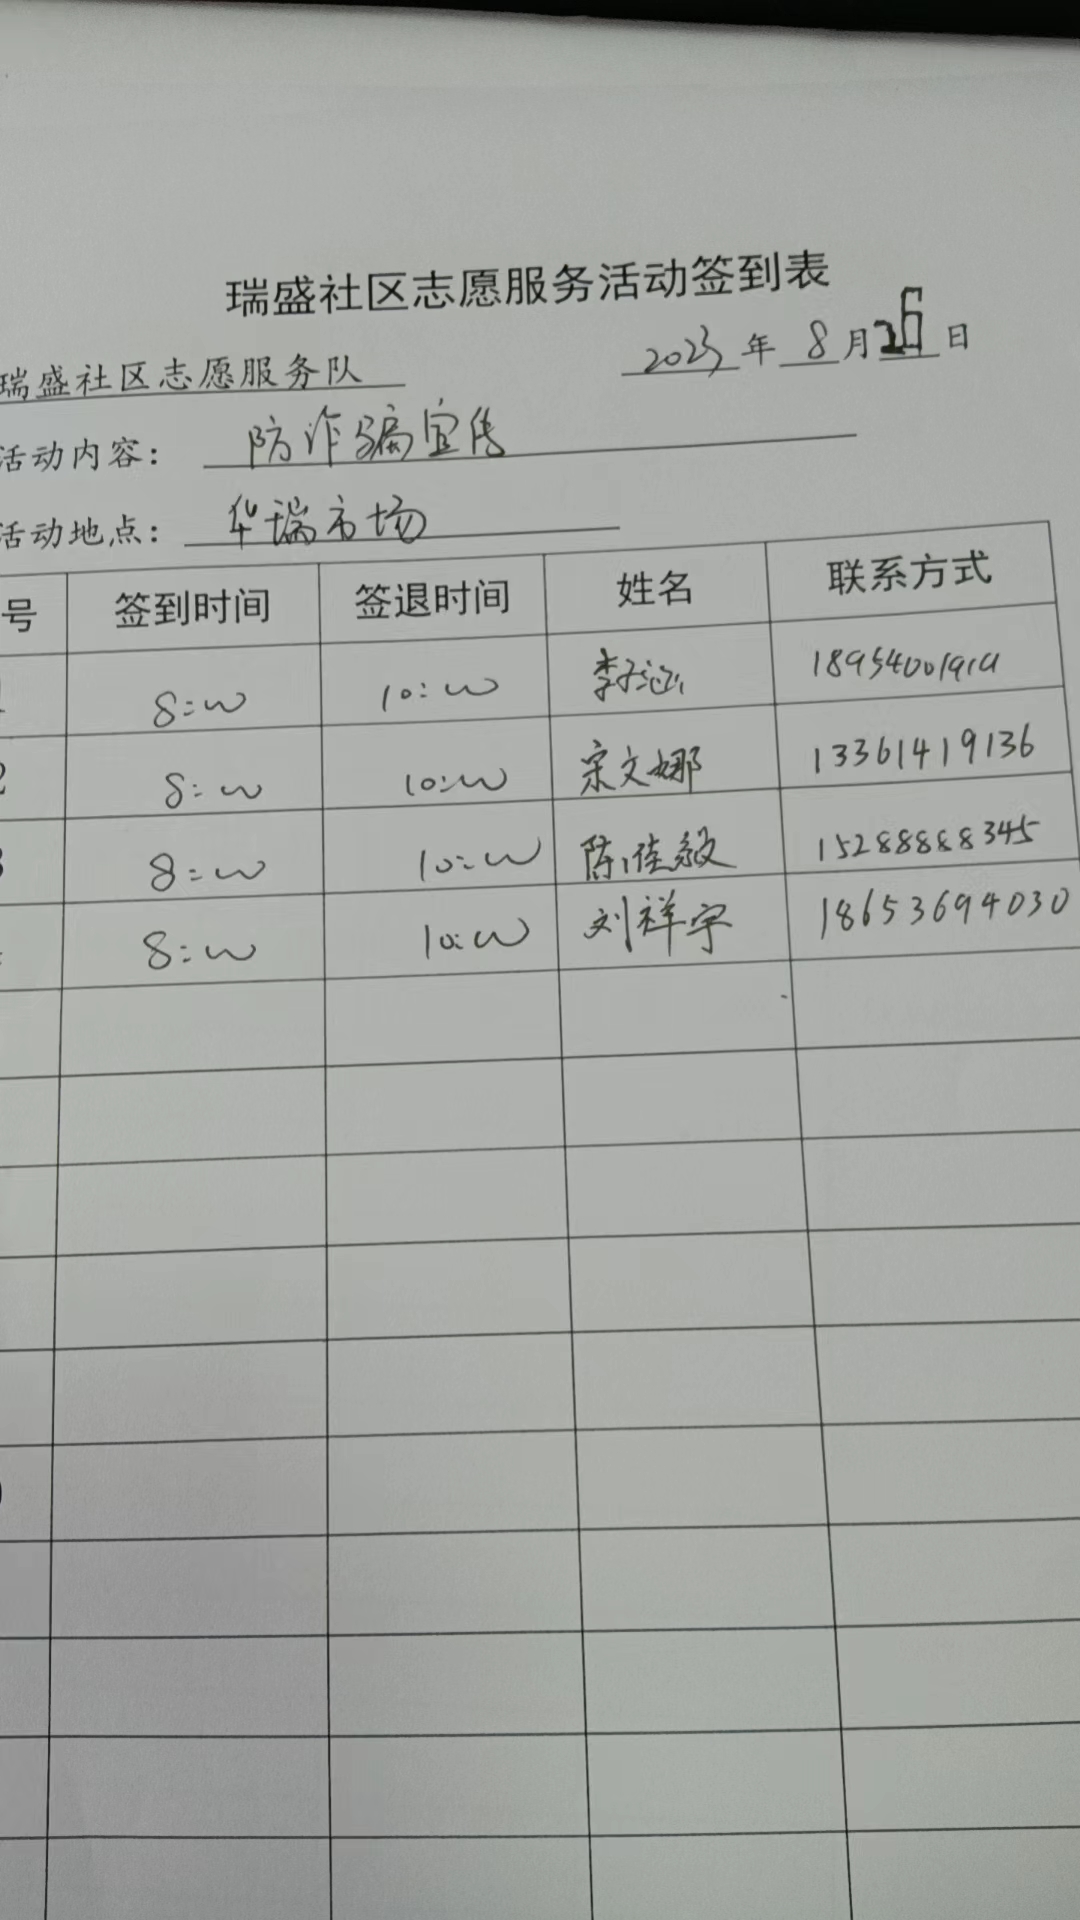 瑞盛社区志愿服务活动签到表
瑞盛社区志愿服务队 2023年 8月26日
活动内容： 防诈骗宣传
活动地点： 华瑞市场
号 签到时间 签退时间 姓名 联系方式
8:00 10:00 李子涵
2 8:00 10:00 宋文娜 13361419136
3 8:00 10:00 陈佳敏 15288888345
8:00 10:00 刘祥宇 18653694030